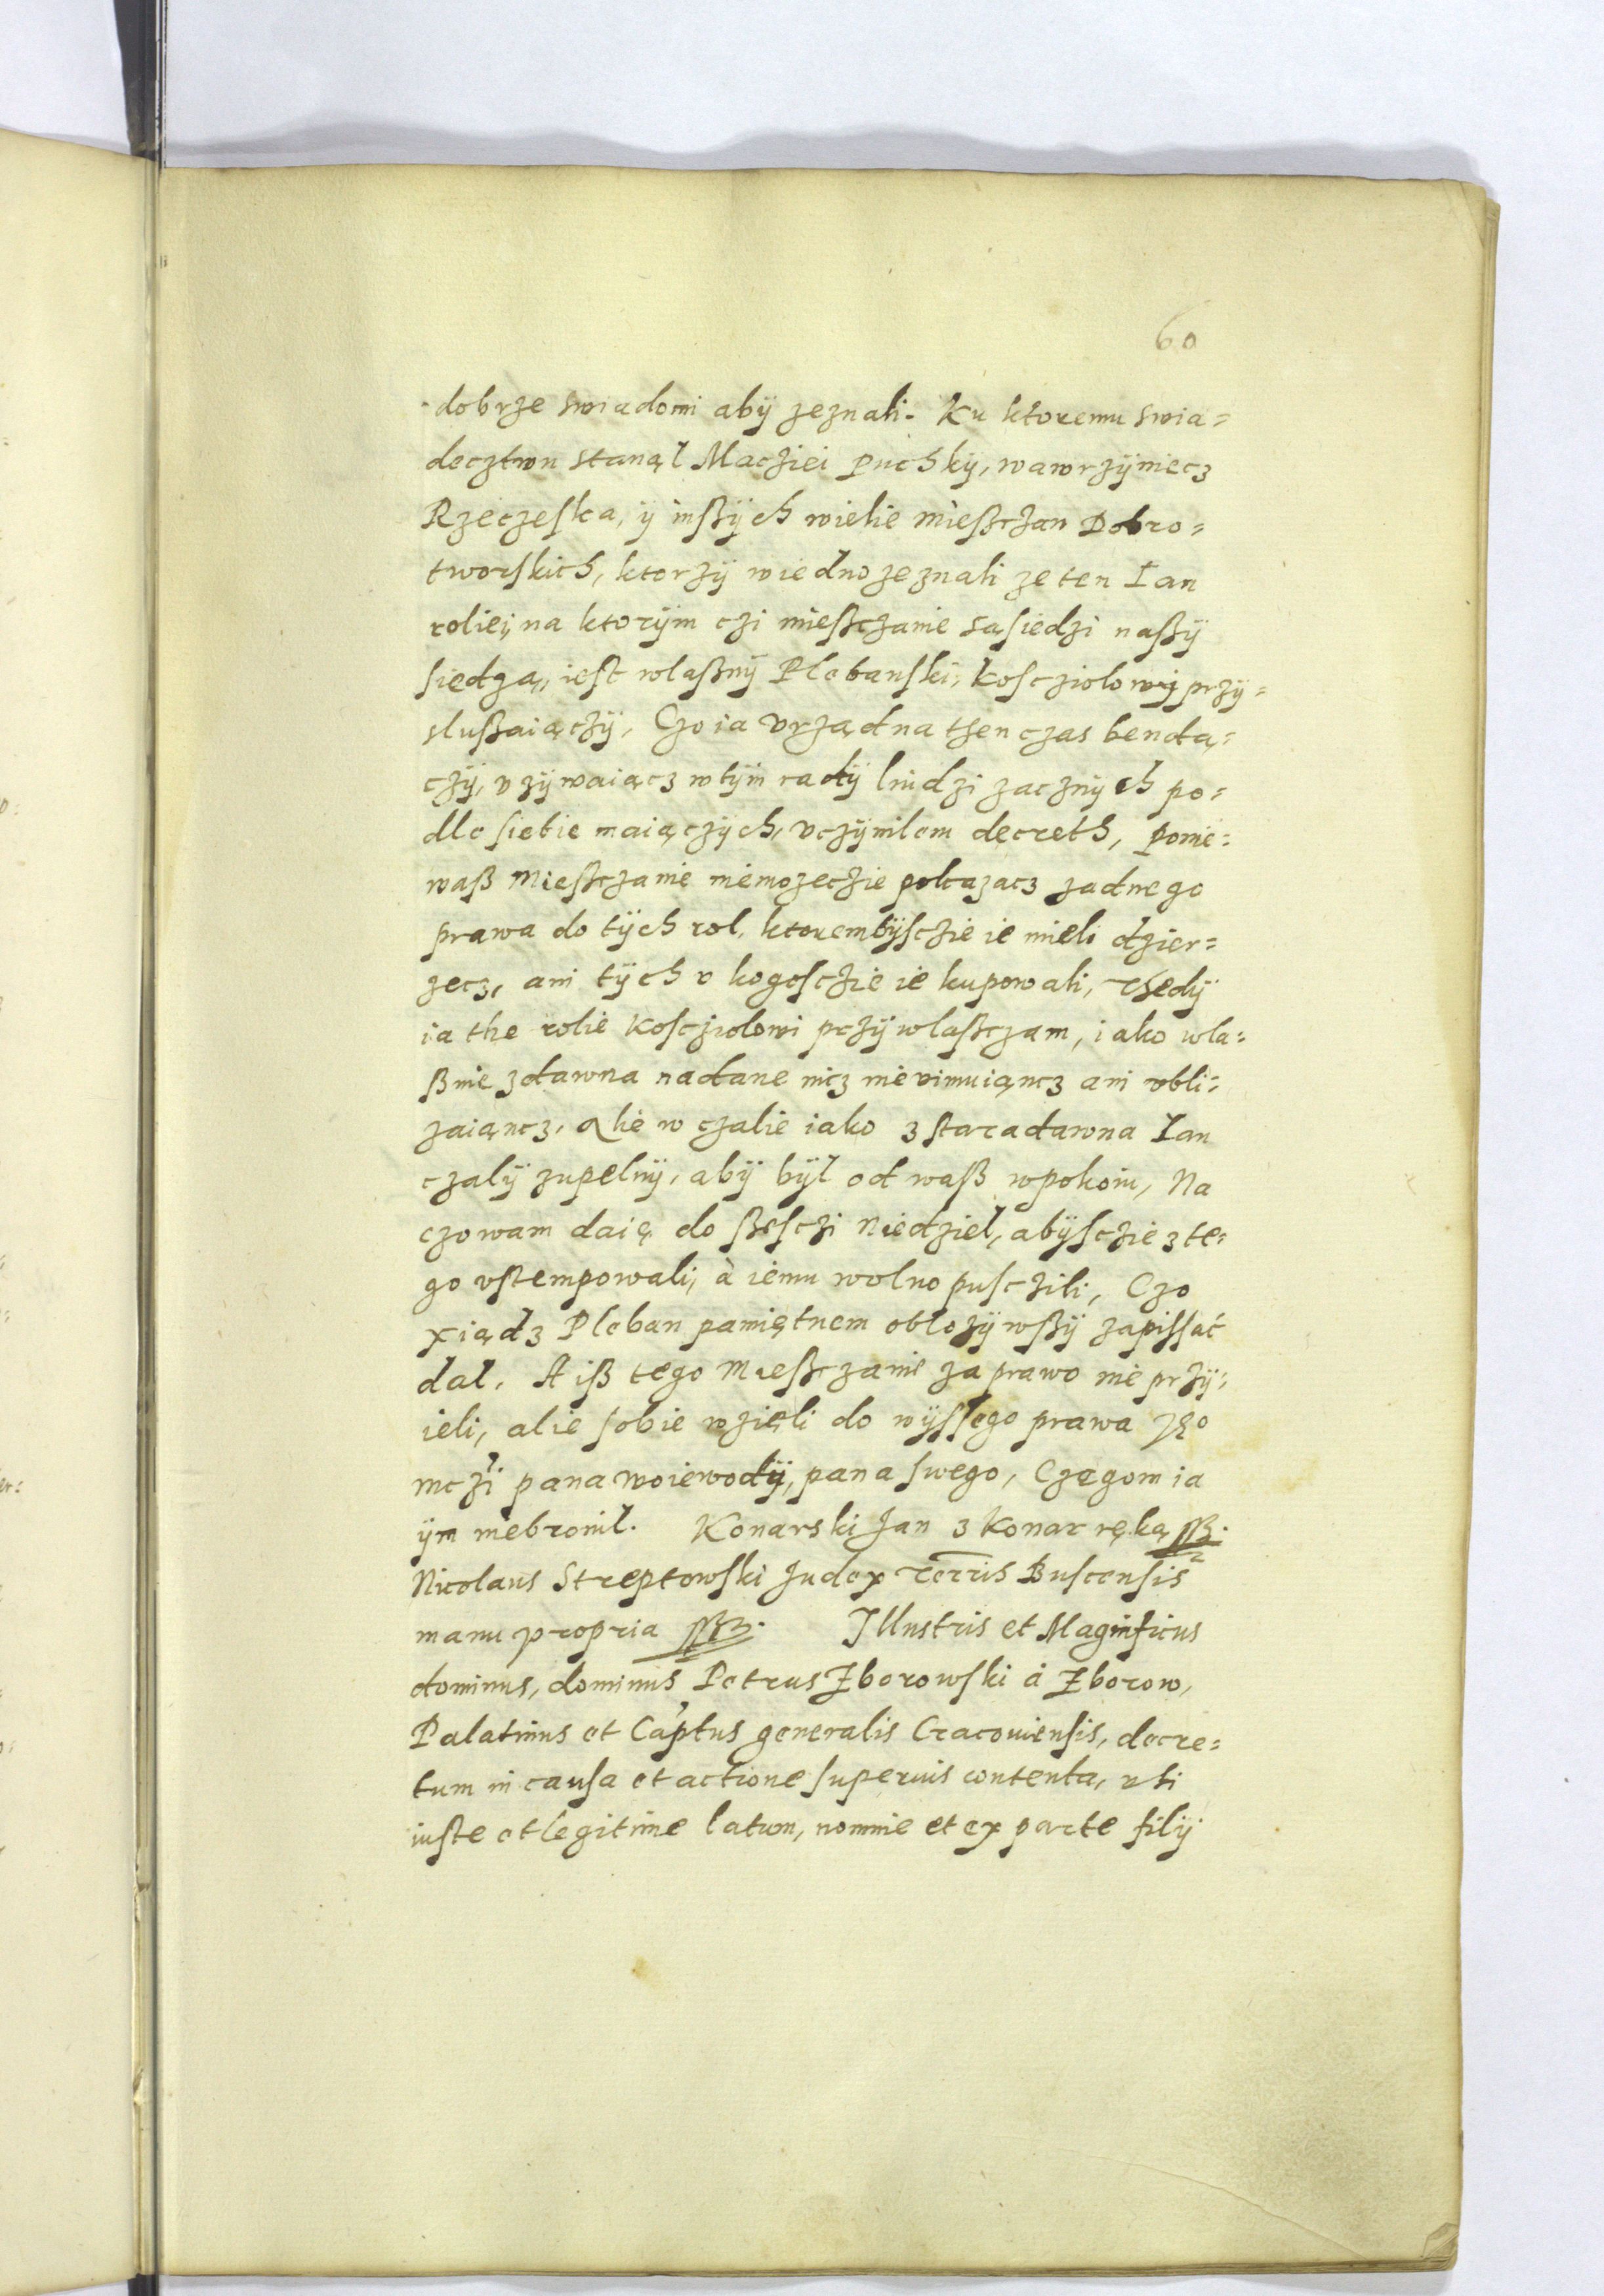 60
dobrze swiadomi abÿ zeznali. Ku ktoremu swia=
decztwu stanął Macziei Puchskÿ, wawrzÿniecz
Rzeczeska, ÿ inßÿch wielie mießczan Dobro=
tworskich, ktorzÿ wiedno zeznali ze ten Ian
roliei, na ktorÿm czi mießczanie sąsiedzi naßÿ
siedzą, iest wlaßnÿ Plebanski, kosciolowi przÿ=
slußaiączÿ, Czo ia vrząd na then czas bendą=
czÿ, vzÿwaiącz w tÿm radÿ liudzi zacznÿch po=
dle siebie maiączÿch, vczÿnilem decreth, ponie=
waß Mießczanie niemozeczie pokazacz zadnego
prawa do tÿch rol, ktorembÿsczie ie mieli dzier=
zecz, ani tÿch v kogosczie ie kupowali, Thedÿ
ia the rolie kosciolowi przÿwlaßczam, iako wla=
ßnie zdawna nadane nicz nie vimuiąncz ani vbli=
zaiąncz, alie w czalie iako z staradawna Ian
czalÿ zupelnÿ, abÿ bÿl od waß wpokoiu, Na
czo wam daię do ßesczi Niedziel, abÿsczie z te=
go vstempowali, à iemu wolno pusczili, Czo
xiądz Pleban pamiętnem oblozÿwßÿ zapissać
dal. A iß tego Mießczanie za prawo nie przÿ=
ieli, alie sobie wzięli do wÿssego prawa Jeo
mczi pana woiewodÿ, pana swego, Czegom ia
ÿm niebronil. Konarski Jan z Konar ręką ßß.
Nicolaus Streptowski Judex Terris Buscensis
manu propria ßß. Illustris et Magnificus
dominus, dominus Petrus Zborowski á Zborow,
Palatinus et Captus generalis Cracoviensis, decre=
tum in causa et actione superius contenta, vti
iuste et legitime latum, nomine et ex parte filÿ